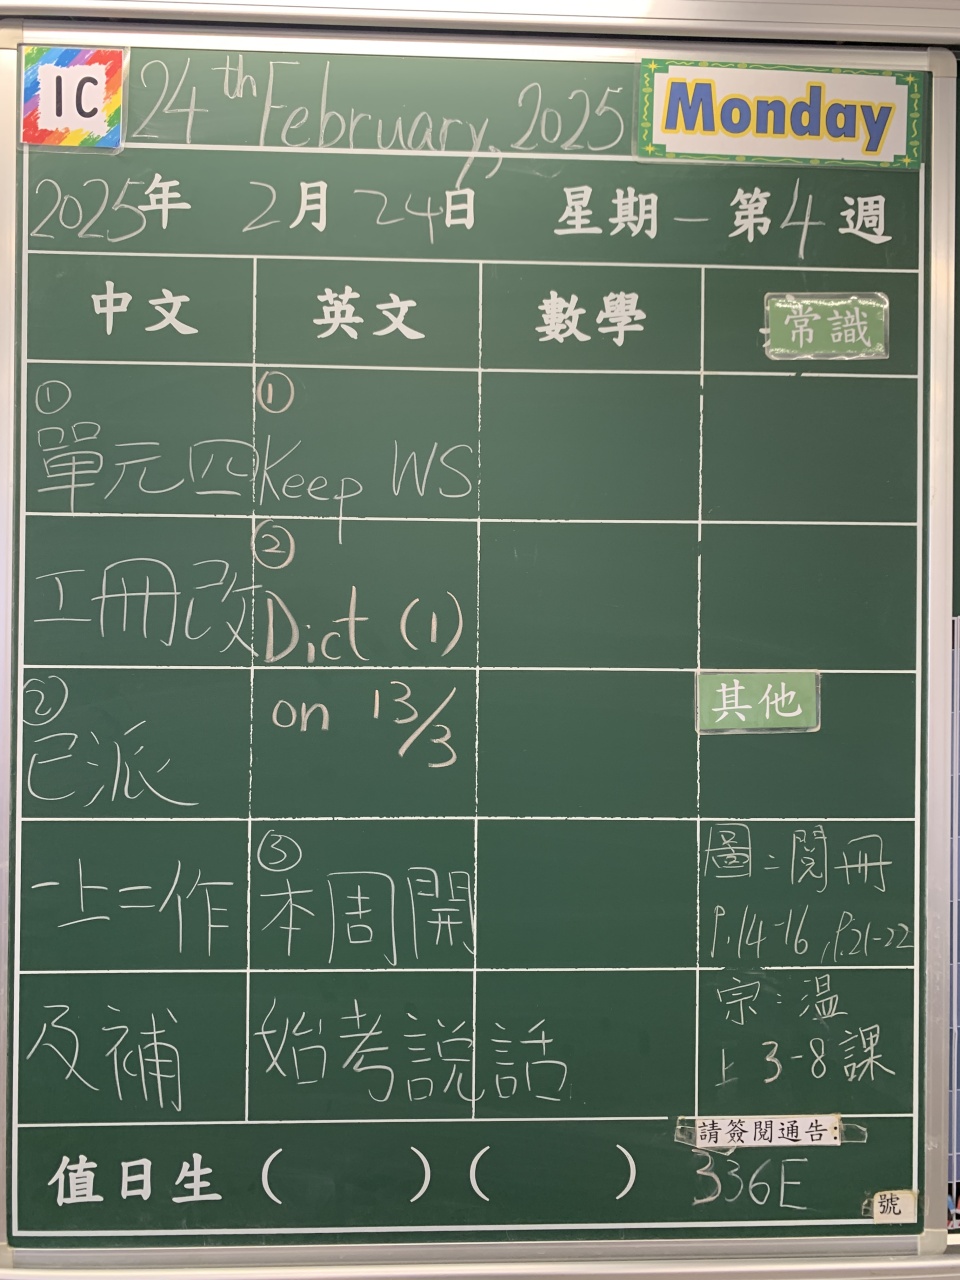 1C 24th February, 2025 Monday
2025年 2月 24日 星期一 第4週
中文 英文 數學 常識
①
單元四
工冊改
②
已派
一上二作
及補
①
Keep WS
②
Dict (1)
on 13/3
③
本周開
始考説話
其他
圖:閱冊
P.14-16, P.21-22
宗:溫
上3-8課
值日生 ( ) ( )
請簽閱通告:
336E
號